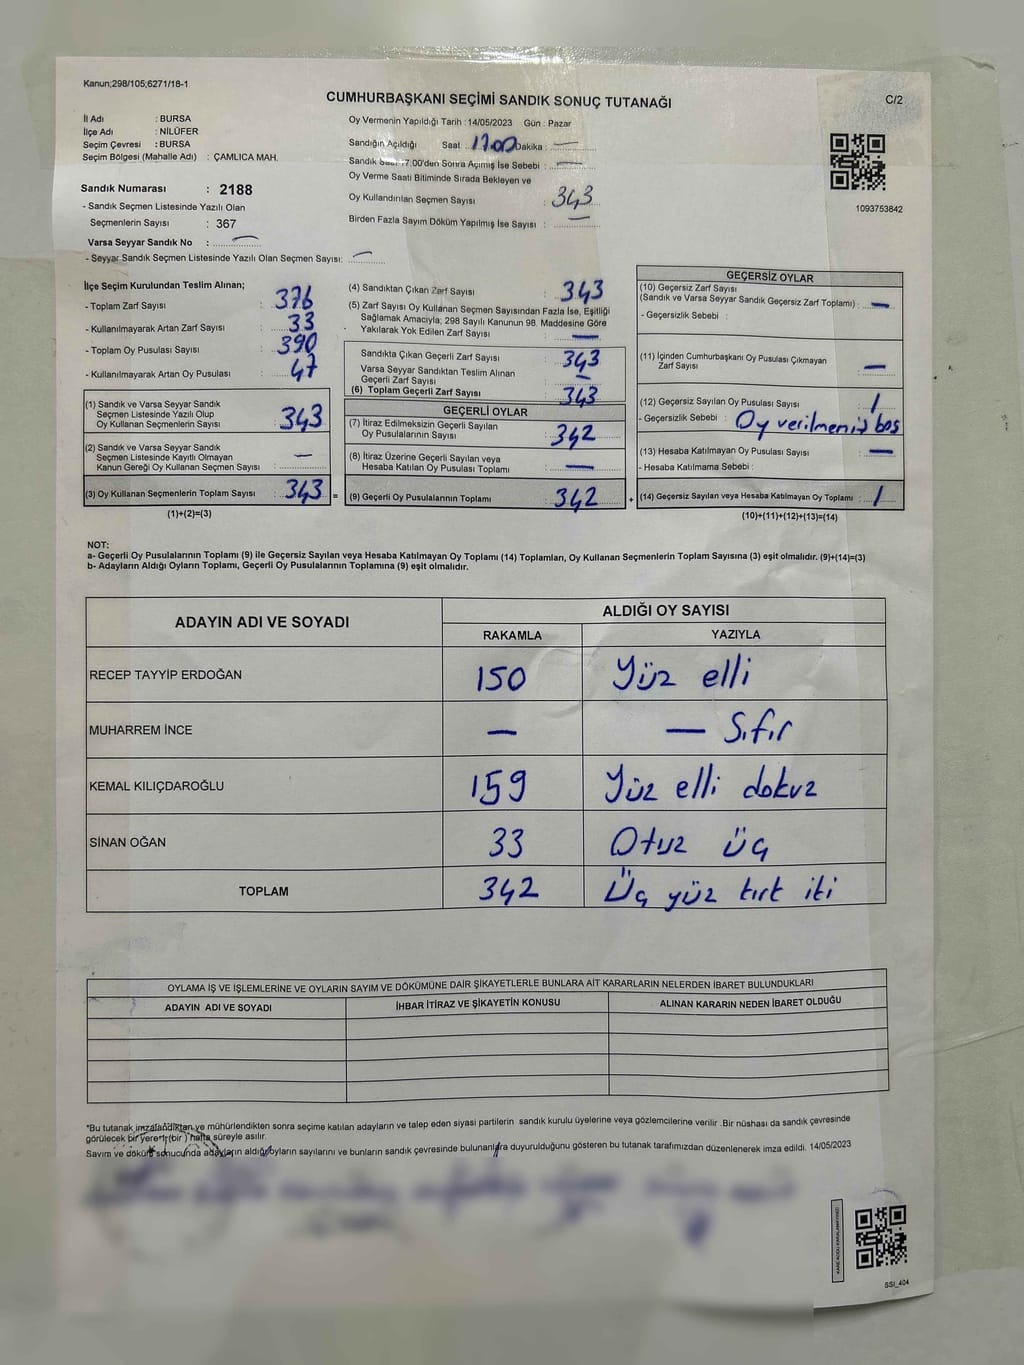 Kanun;298/105;6271/18-1
CUMHURBAŞKANI SEÇİMİ SANDIK SONUÇ TUTANAĞI
C/2
İl Adı : BURSA
İlçe Adı : NİLÜFER
Seçim Çevresi : BURSA
Seçim Bölgesi (Mahalle Adı) : ÇAMLICA MAH.
Sandık Numarası : 2188
- Sandık Seçmen Listesinde Yazılı Olan
Seçmenlerin Sayısı : 367
Varsa Seyyar Sandık No : —
- Seyyar Sandık Seçmen Listesinde Yazılı Olan Seçmen Sayısı: —
Oy Vermenin Yapıldığı Tarih : 14/05/2023 Gün : Pazar
Sandığın Açıldığı Saat : 17.00 Dakika : —
Sandık Saat 17.00'den Sonra Açılmış İse Sebebi : —
Oy Verme Saati Bitiminde Sırada Bekleyen ve
Oy Kullandırılan Seçmen Sayısı : 343
Birden Fazla Sayım Döküm Yapılmış İse Sayısı : —
1093753842
İlçe Seçim Kurulundan Teslim Alınan;
- Toplam Zarf Sayısı : 376
- Kullanılmayarak Artan Zarf Sayısı : 33
- Toplam Oy Pusulası Sayısı : 390
- Kullanılmayarak Artan Oy Pusulası : 47
(1) Sandık ve Varsa Seyyar Sandık
Seçmen Listesinde Yazılı Olup
Oy Kullanan Seçmenlerin Sayısı : 343
(2) Sandık ve Varsa Seyyar Sandık
Seçmen Listesinde Kayıtlı Olmayan
Kanun Gereği Oy Kullanan Seçmen Sayısı : —
(3) Oy Kullanan Seçmenlerin Toplam Sayısı : 343 =
(1)+(2)=(3)
(4) Sandıktan Çıkan Zarf Sayısı : 343
(5) Zarf Sayısı Oy Kullanan Seçmen Sayısından Fazla İse, Eşitliği
Sağlamak Amacıyla, 298 Sayılı Kanunun 98. Maddesine Göre
Yakılarak Yok Edilen Zarf Sayısı : —
Sandıkta Çıkan Geçerli Zarf Sayısı : 343
Varsa Seyyar Sandıktan Teslim Alınan
Geçerli Zarf Sayısı : —
(6) Toplam Geçerli Zarf Sayısı : 343
GEÇERLİ OYLAR
(7) İtiraz Edilmeksizin Geçerli Sayılan
Oy Pusulalarının Sayısı : 342
(8) İtiraz Üzerine Geçerli Sayılan veya
Hesaba Katılan Oy Pusulası Toplamı : —
(9) Geçerli Oy Pusulalarının Toplamı : 342 +
GEÇERSİZ OYLAR
(10) Geçersiz Zarf Sayısı
(Sandık ve Varsa Seyyar Sandık Geçersiz Zarf Toplamı) : —
- Geçersizlik Sebebi :
(11) İçinden Cumhurbaşkanı Oy Pusulası Çıkmayan
Zarf Sayısı : —
(12) Geçersiz Sayılan Oy Pusulası Sayısı : 1
- Geçersizlik Sebebi : Oy verilmemiş boş
(13) Hesaba Katılmayan Oy Pusulası Sayısı : —
- Hesaba Katılmama Sebebi :
(14) Geçersiz Sayılan veya Hesaba Katılmayan Oy Toplamı : 1
(10)+(11)+(12)+(13)=(14)
NOT:
a- Geçerli Oy Pusulalarının Toplamı (9) ile Geçersiz Sayılan veya Hesaba Katılmayan Oy Toplamı (14) Toplamları, Oy Kullanan Seçmenlerin Toplam Sayısına (3) eşit olmalıdır. (9)+(14)=(3)
b- Adayların Aldığı Oyların Toplamı, Geçerli Oy Pusulalarının Toplamına (9) eşit olmalıdır.
ADAYIN ADI VE SOYADI ALDIĞI OY SAYISI
RAKAMLA YAZIYLA
RECEP TAYYİP ERDOĞAN 150 Yüz elli
MUHARREM İNCE — — Sıfır
KEMAL KILIÇDAROĞLU 159 Yüz elli dokuz
SİNAN OĞAN 33 Otuz üç
TOPLAM 342 Üç yüz kırk iki
OYLAMA İŞ VE İŞLEMLERİNE VE OYLARIN SAYIM VE DÖKÜMÜNE DAİR ŞİKAYETLERLE BUNLARA AİT KARARLARIN NELERDEN İBARET BULUNDUKLARI
ADAYIN ADI VE SOYADI İHBAR İTİRAZ VE ŞİKAYETİN KONUSU ALINAN KARARIN NEDEN İBARET OLDUĞU
*Bu tutanak imzalandıktan ve mühürlendikten sonra seçime katılan adayların ve talep eden siyasi partilerin sandık kurulu üyelerine veya gözlemcilerine verilir .Bir nüshası da sandık çevresinde
görülecek bir yere 1 (bir ) hafta süreyle asılır.
Sayım ve döküm sonucunda adayların aldığı oyların sayılarını ve bunların sandık çevresinde bulunanlara duyurulduğunu gösteren bu tutanak tarafımızdan düzenlenerek imza edildi. 14/05/2023
SSI_404